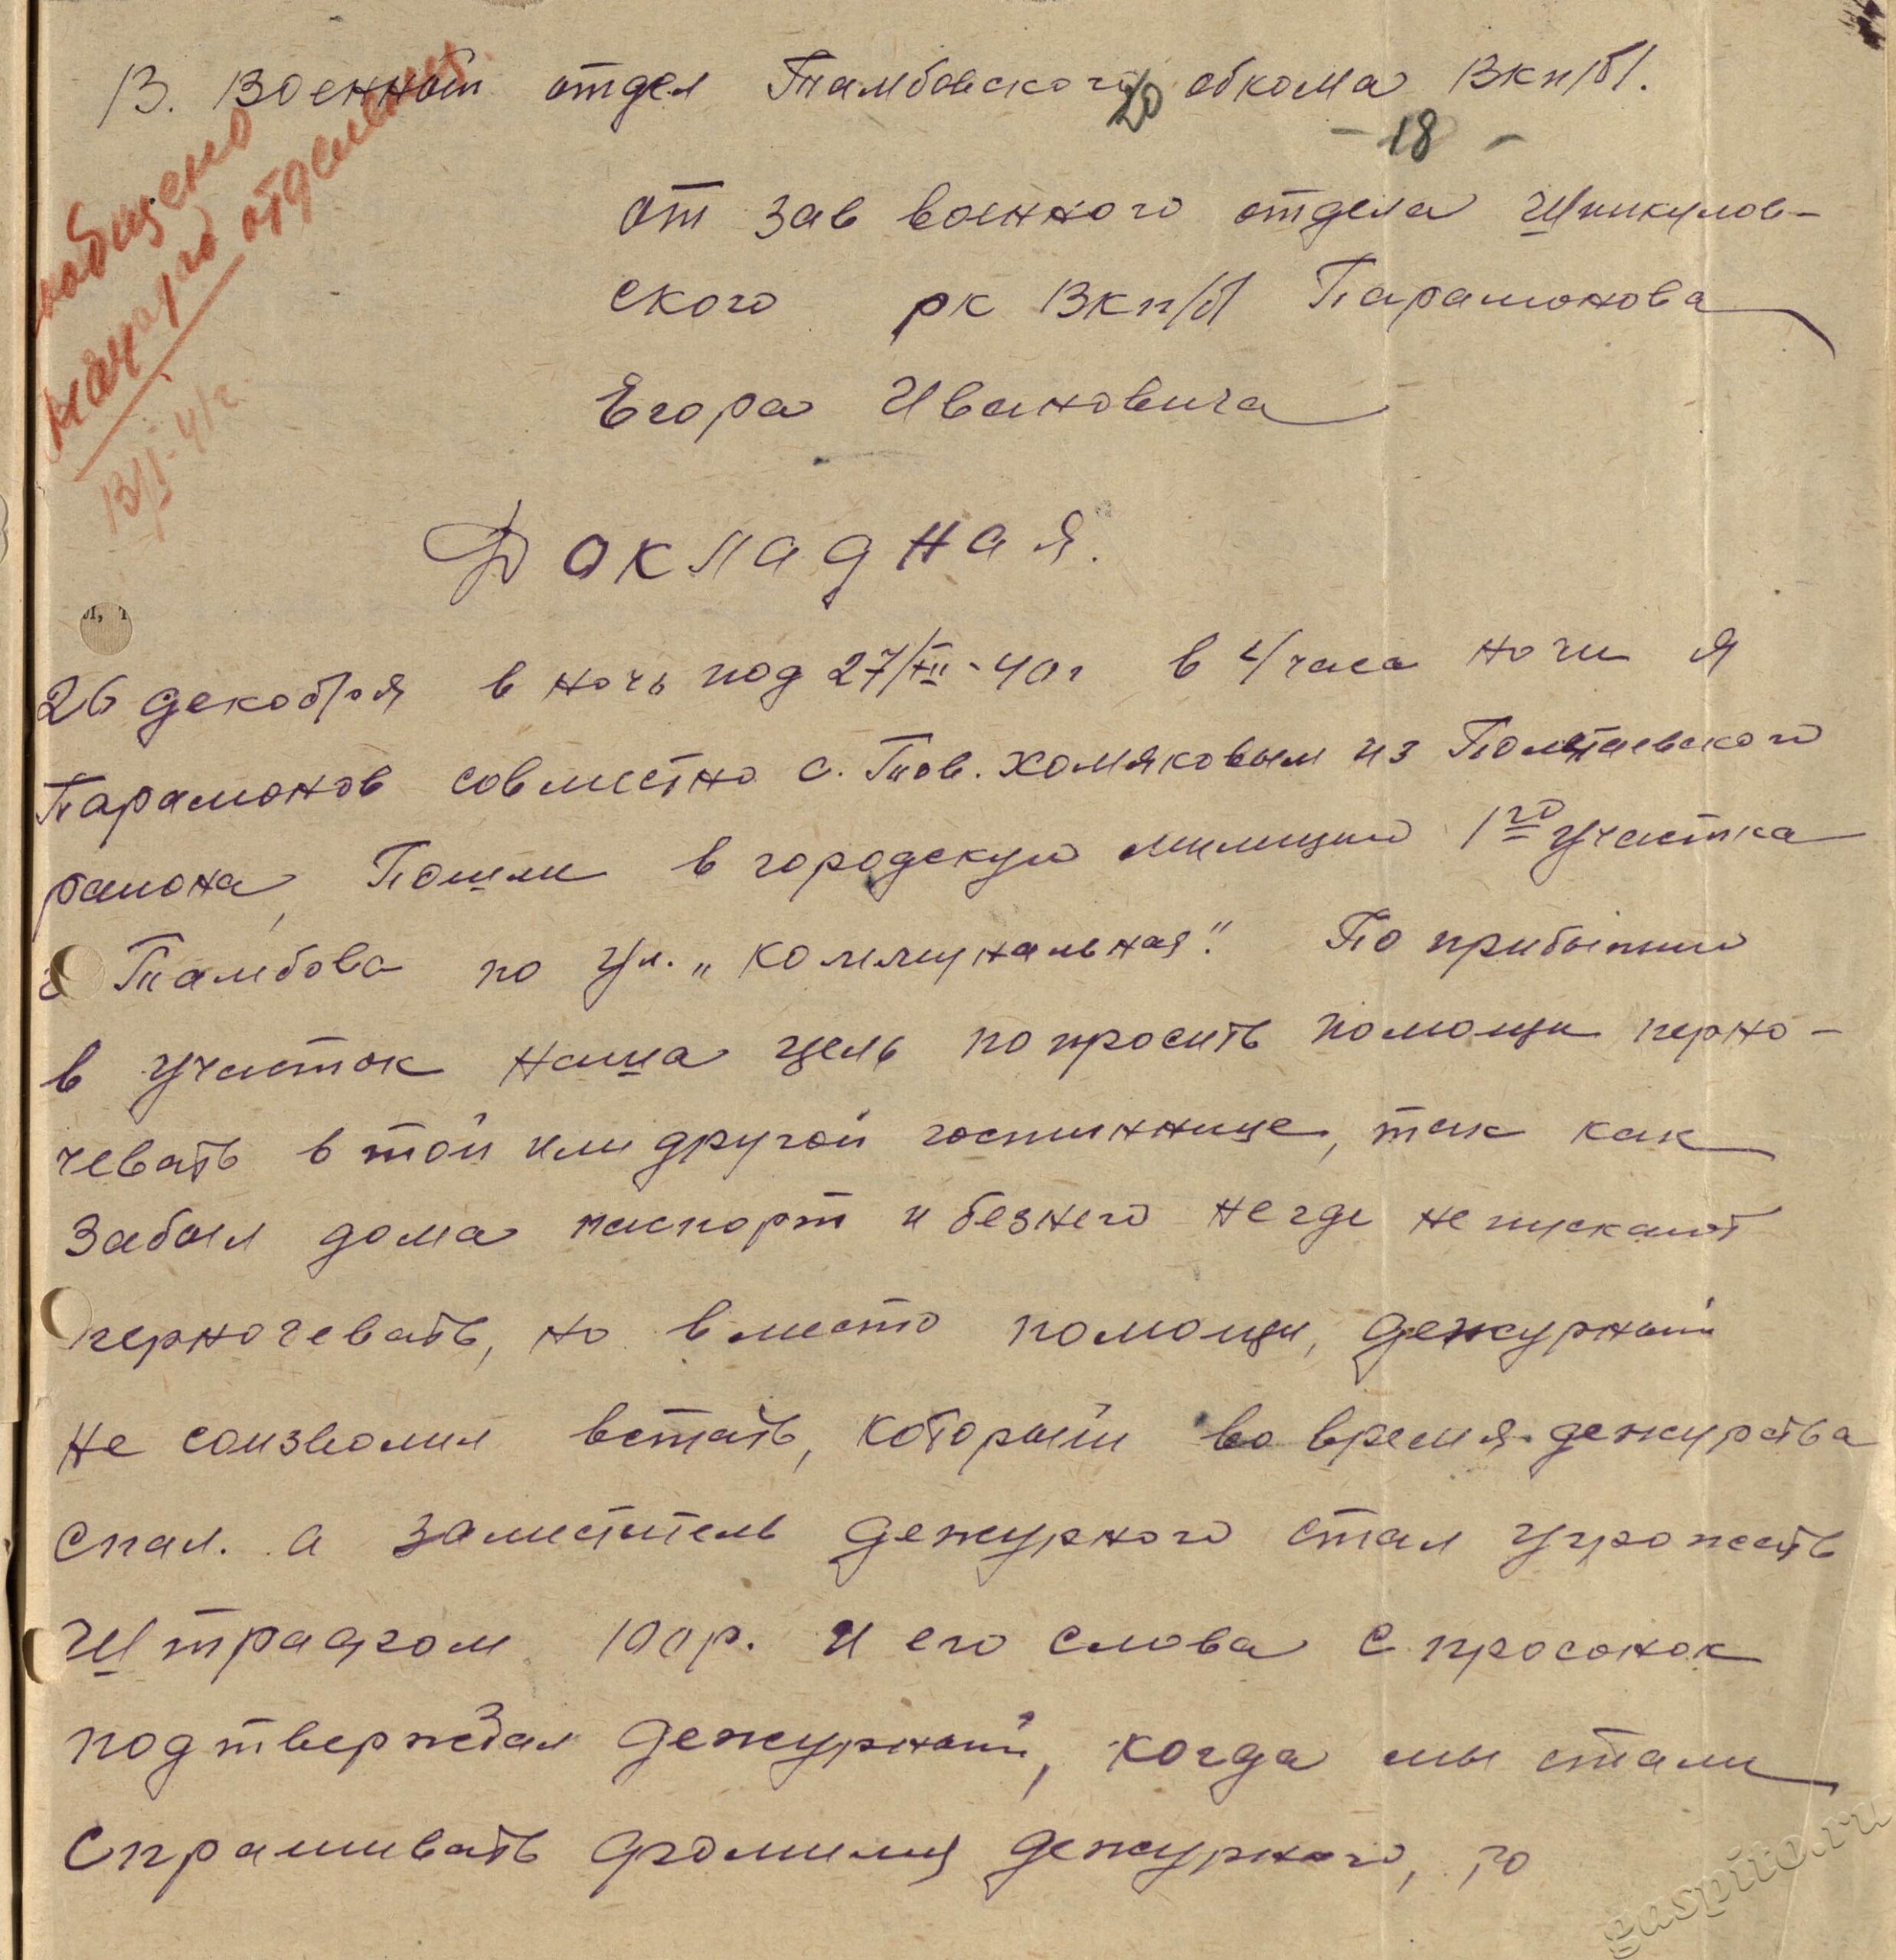 В. Военный отдел Тамбовского обкома Вкп/б/.
20
- 18 -
от зав военного отдела Шпикулов-
ского рк Вкп/б/ Парамонова
Егора Ивановича
сообщено
нач 1го отделения
13/I-41г.
Докладная.
26 декобря в ночь под 27/XII-40г в 4 часа ночи я
Парамонов совместно с. Тов. Хомяковым из Полетаевского
раиона, Пошли в городскую милицию 1го участка
г Тамбова по ул. „Коммунальная". По прибытию
в участок наша цель попросить помощи перно-
чевать в той или другой гостиннице, так как
забыл дома паспорт и безнего негде непускают
перночевать, но вместо помощи, дежурный
не соизволил встать, который во время дежурства
спал. а заместитель дежурного стал угрожать
Штрафом 100р. и его слова спросонок
подтверждал дежурный, когда мы стали
спрашивать фамилия дежурного, то
gaspito.ru